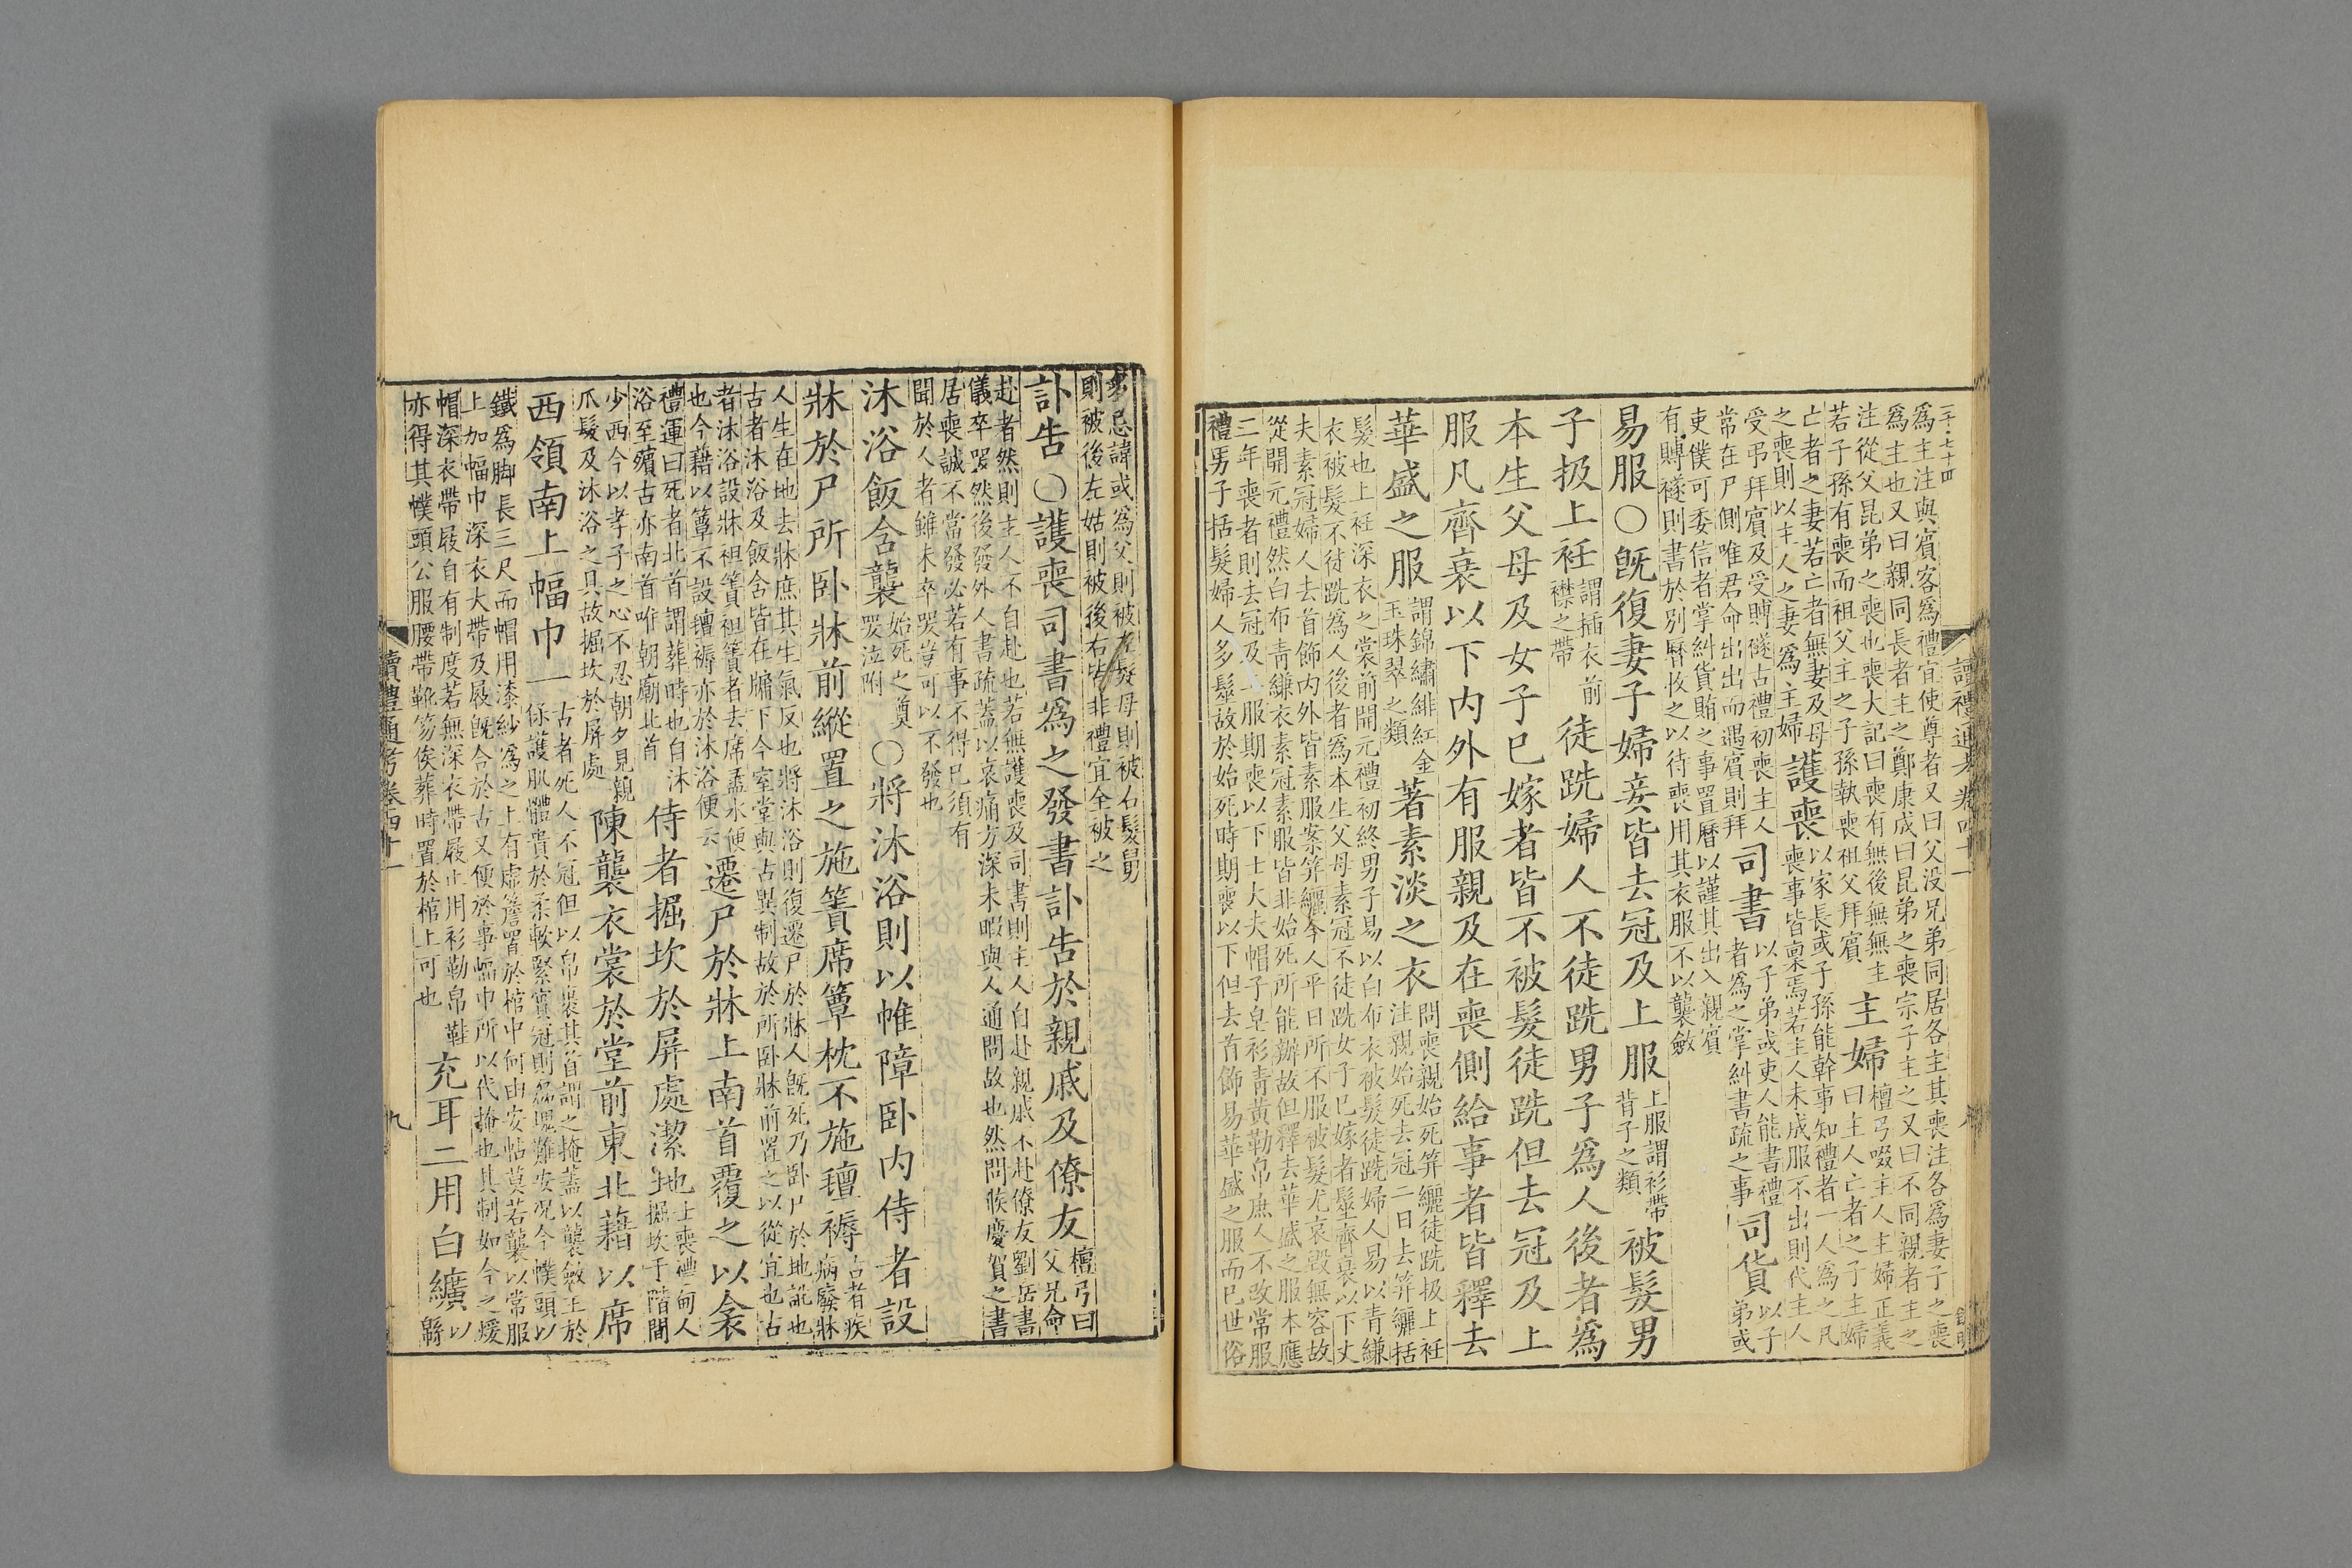 讀禮通考卷四十一
為主注與賓客為禮宜使尊者又曰父没兄弟同居各主其喪注各為妻子之喪
為主也又曰親同長者主之鄭康成曰昆弟之喪宗子主之又曰不同親者主之
注從父昆弟之喪也喪大記曰喪有無後無無主
若子孫有喪而祖父主之子孫執喪祖父拜賓
主婦
檀弓啜主人主婦正義
曰主人亡者之子主婦
亡者之妻若亡者無妻及母
之喪則以主人之妻為主婦
護喪
以家長或子孫能幹事知禮者一人為之凡
喪事皆稟焉若主人未成服不出則代主人
受弔拜賓及受賻襚古禮初喪主人
常在尸側唯君命出出而遇賓則拜
司書
以子弟或吏人能書禮
者為之掌糾書疏之事
司貨
以子
弟或
吏僕可委信者掌糾貨賄之事置曆以謹其出入親賓
有賻襚則書於别曆收之以待喪用其衣服不以襲斂
易服○旣復妻子婦妾皆去冠及上服
上服謂衫帶
背子之類
被髮男
子扱上衽
謂插衣前
襟之帶
徒跣婦人不徒跣男子為人後者為
本生父母及女子已嫁者皆不被髮徒跣但去冠及上
服凡齊衰以下内外有服親及在喪側給事者皆釋去
華盛之服
謂錦繡緋紅金
玉珠翠之類
著素淡之衣
問喪親始死筓纚徒跣扱上衽
注親始死去冠二日去筓纚括
髮也上衽深衣之裳前開元禮初終男子易以白布衣被髮徒跣婦人易以青縑
衣被髮不徒跣為人後者為本生父母素冠不徒跣女子已嫁者髽齊衰以下丈
夫素冠婦人去首飾内外皆素服案筓纚今人平日所不服被髮尤哀毀無容故
從開元禮然白布青縑衣素冠素服皆非始死所能辦故但釋去華盛之服本應
三年喪者則去冠及一服期喪以下士大夫帽子皂衫青黄勒帛庶人不改常服
禮男子括髮婦人多髽故於始死時期喪以下但去首飾易華盛之服而已世俗
多忌諱或為父則被左髮母則被右髮舅
則被後左姑則被後右皆非禮宜全被之
訃告○護喪司書為之發書訃告於親戚及僚友
檀弓曰
父兄命
赴者然則主人不自赴也若無護喪及司書則主人自赴親戚不赴僚友劉岳書
儀卒哭然後發外人書疏蓋以哀痛方深未暇與人通問故也然問候慶賀之書
居喪誠不當發必若有事不得已須有
聞於人者雖未卒哭豈可以不發也
沐浴飯含襲
始死之奠
哭泣附
○將沐浴則以帷障卧内侍者設
牀於尸所卧牀前縱置之施簀席簟枕不施氊褥
古者疾
病廢牀
人生在地去牀庶其生氣反也將沐浴則復遷尸於牀人旣死乃卧尸於地訛也
古者沐浴及飯含皆在牖下今室堂與古異制故於所卧牀前置之以從宜也古
者沐浴設牀袒簀袒簀者去席盝水便
也今藉以簟不設氊褥亦於沐浴便云
遷尸於牀上南首覆之以衾
禮運曰死者北首謂葬時也自沐
浴至殯古亦南首唯朝廟北首
侍者掘坎於屏處潔地
士喪禮甸人
掘坎于階間
少西今以孝子之心不忍朝夕見親
爪髮及沐浴之具故掘坎於屏處
陳襲衣裳於堂前東北藉以席
西領南上幅巾一
古者死人不冠但以帛裹其首謂之掩蓋以襲斂主於
保護肌體貴於柔軟緊實冠則磊嵬難安况今幞頭以
鐵為脚長三尺而帽用漆紗為之上有虚簷置於棺中何由安帖莫若襲以常服
上加幅巾深衣大帶及屐旣合於古又便於事幅巾所以代掩也其制如今之煖
帽深衣帶屐自有制度若無深衣帶屐止用衫勒帛鞋
亦得其幞頭公服腰帶靴笏俟葬時置於棺上可也
充耳二用白纊
以
緜
讀禮通考卷四十一
九